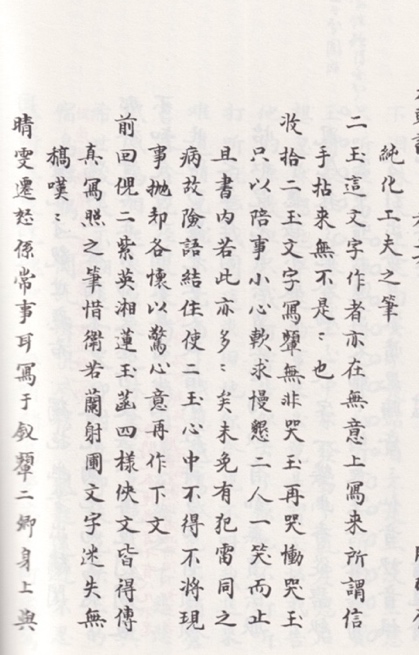 純化工夫之筆
二玉這文字作者亦在無意上寫来所謂信
手拈来無不是︰也
收拾二玉文字寫顰無非哭玉再哭慟哭玉
只以陪事小心軟求慢懇二人一笑而止
且書内若此亦多︰矣未免有犯雷同之
病故險語結住使二玉心中不得不將現
事抛却各懷以驚心意再作下文
前回倪二紫英湘蓮玉菡四様侠文皆得傳
真寫照之筆惜衛若蘭射圃文字迷失無
稿嘆︰
晴雯遷怒係常事耳寫于釵顰二卿身上與